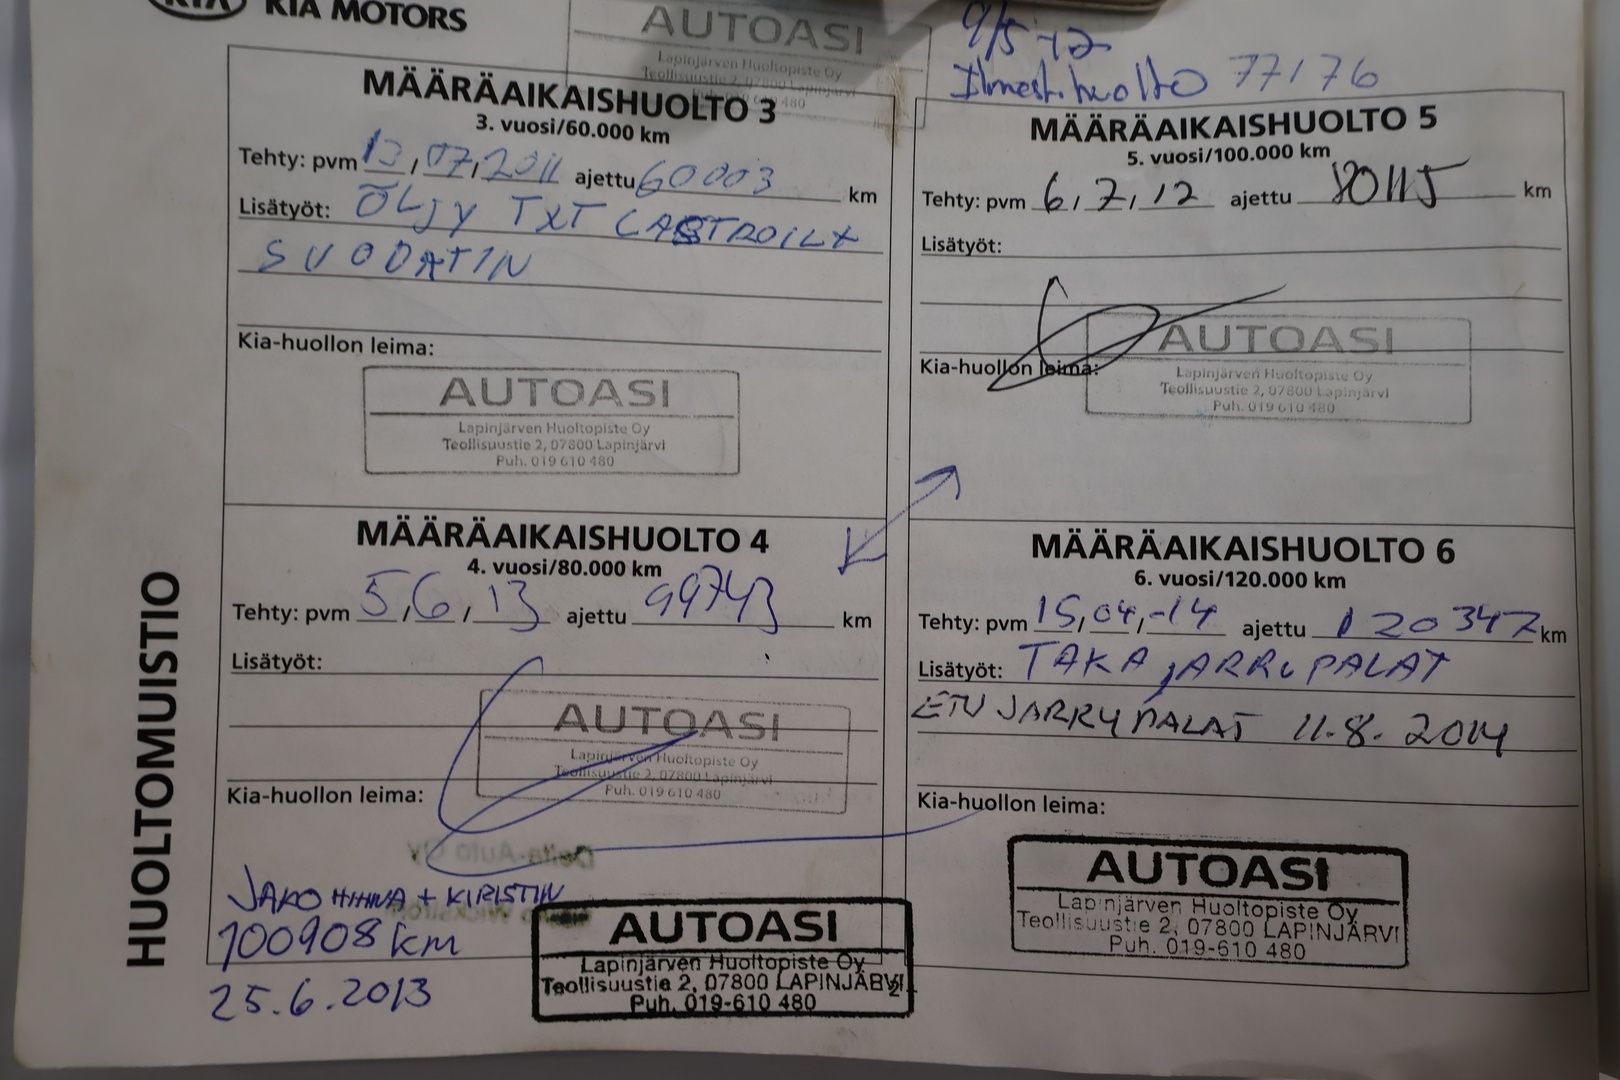 KIA KIA MOTORS
AUTOASI
Lapinjärven Huoltopiste Oy
Teollisuustie 2, 07800 Lapinjärvi
Puh. 019 610 480
9/5-12
Ilmast.huolto 77176
MÄÄRÄAIKAISHUOLTO 3
3. vuosi/60.000 km
Tehty: pvm 13,07,2011 ajettu 60003 km
Lisätyöt: ÖLJY TXT CASTROIL+
SUODATIN
Kia-huollon leima:
AUTOASI
Lapinjärven Huoltopiste Oy
Teollisuustie 2, 07800 Lapinjärvi
Puh. 019 610 480
MÄÄRÄAIKAISHUOLTO 5
5. vuosi/100.000 km
Tehty: pvm 6,7,12 ajettu 80115 km
Lisätyöt:
Kia-huollon leima:
AUTOASI
Lapinjärven Huoltopiste Oy
Teollisuustie 2, 07800 Lapinjärvi
Puh. 019 610 480
MÄÄRÄAIKAISHUOLTO 4
4. vuosi/80.000 km
Tehty: pvm 5,6,13 ajettu 99743 km
Lisätyöt:
AUTOASI
Lapinjärven Huoltopiste Oy
Teollisuustie 2, 07800 Lapinjärvi
Puh. 019 610 480
Kia-huollon leima:
JAKO HIHNA + KIRISTIN
100908 km
25.6.2013
AUTOASI
Lapinjärven Huoltopiste Oy
Teollisuustie 2, 07800 LAPINJÄRVI
Puh. 019-610 480
2
MÄÄRÄAIKAISHUOLTO 6
6. vuosi/120.000 km
Tehty: pvm 15,04,-14 ajettu 120347 km
Lisätyöt: TAKA JARRUPALAT
ETU JARRUPALAT 11.8.2014
Kia-huollon leima:
AUTOASI
Lapinjärven Huoltopiste Oy
Teollisuustie 2, 07800 LAPINJÄRVI
Puh. 019-610 480
HUOLTOMUISTIO